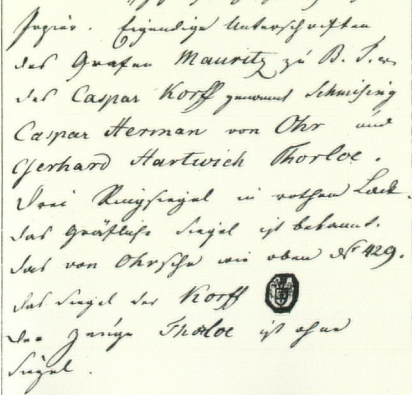 Papier. Eigendige Unterschriften
des Grafen Mauritz zu B. T. u.
des Caspar Korff genannt Schmising
Caspar Herman von Ohr und
Gerhard Hartwich Thorloe.
Drei Ringsiegel in rothen Lack.
das Gräfliche Siegel ist bekannt.
das von Ohrsche wie oben No 429.
das Siegel des Korff
der Zeuge Thorloe ist ohne
Siegel.